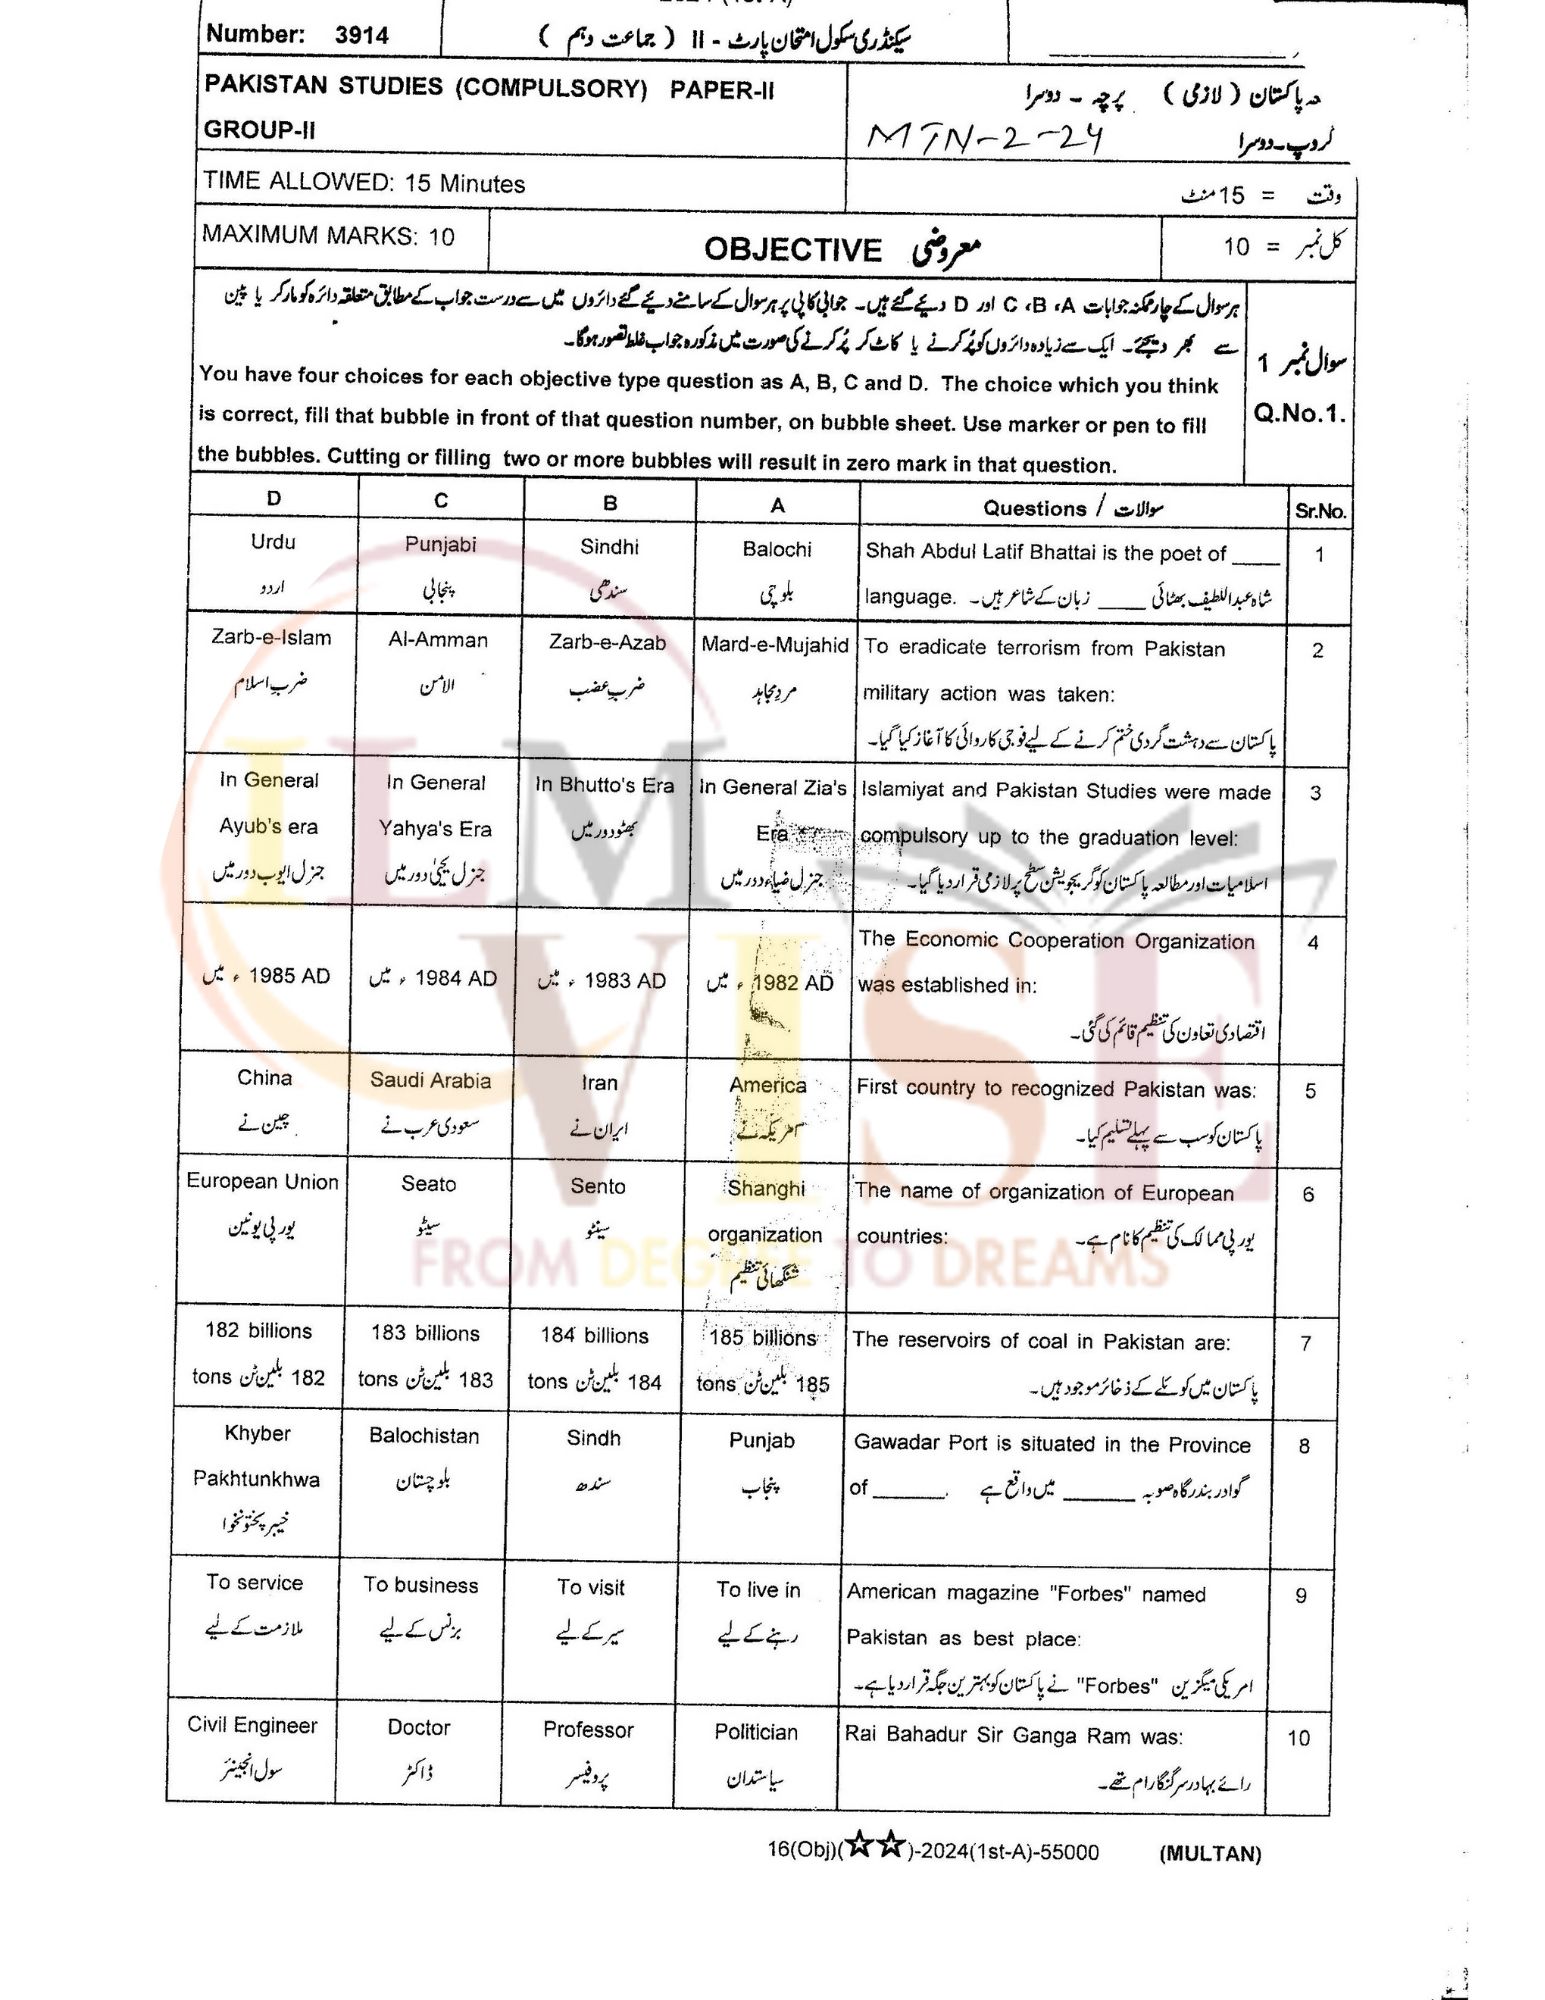 Number: 3914
سیکنڈری سکول امتحان پارٹ - II ( جماعت دہم )
PAKISTAN STUDIES (COMPULSORY) PAPER-II
GROUP-II
پاکستان ( لازمی ) پرچہ - دوسرا
MTN-2-24
گروپ-دوسرا
TIME ALLOWED: 15 Minutes
وقت = 15 منٹ
MAXIMUM MARKS: 10
OBJECTIVE معروضی
کل نمبر = 10
ہر سوال کے چار ممکنہ جوابات A، B، C اور D دیئے گئے ہیں۔ جوابی کاپی پر ہر سوال کے سامنے دیئے گئے دائروں میں سے درست جواب کے مطابق متعلقہ دائرہ کو مارکر یا پین
سے بھر دیجئے۔ ایک سے زیادہ دائروں کو پُر کرنے یا کاٹ کر پُر کرنے کی صورت میں مذکورہ جواب غلط تصور ہوگا۔
You have four choices for each objective type question as A, B, C and D. The choice which you think
is correct, fill that bubble in front of that question number, on bubble sheet. Use marker or pen to fill
the bubbles. Cutting or filling two or more bubbles will result in zero mark in that question.
سوال نمبر 1
Q.No.1.
D C B A Questions / سوالات Sr.No.
Urdu Punjabi Sindhi Balochi Shah Abdul Latif Bhattai is the poet of ____ 1
اردو پنجابی سندھی بلوچی language. شاہ عبداللطیف بھٹائی ____ زبان کے شاعر ہیں۔
Zarb-e-Islam Al-Amman Zarb-e-Azab Mard-e-Mujahid To eradicate terrorism from Pakistan 2
ضربِ اسلام الامن ضربِ عضب مردِ مجاہد military action was taken:
پاکستان سے دہشت گردی ختم کرنے کے لیے فوجی کاروائی کا آغاز کیا گیا۔
In General In General In Bhutto's Era In General Zia's Islamiyat and Pakistan Studies were made 3
Ayub's era Yahya's Era بھٹو دور میں Era compulsory up to the graduation level:
جنرل ایوب دور میں جنرل یحییٰ دور میں جنرل ضیاء دور میں اسلامیات اور مطالعہ پاکستان کو گریجویشن سطح پر لازمی قرار دیا گیا۔
The Economic Cooperation Organization 4
1985 AD ء میں 1984 AD ء میں 1983 AD ء میں 1982 AD ء میں was established in:
اقتصادی تعاون کی تنظیم قائم کی گئی۔
China Saudi Arabia Iran America First country to recognized Pakistan was: 5
چین نے سعودی عرب نے ایران نے امریکہ نے پاکستان کو سب سے پہلے تسلیم کیا۔
European Union Seato Sento Shanghi The name of organization of European 6
یورپی یونین سیٹو سینٹو organization countries: یورپی ممالک کی تنظیم کا نام ہے۔
شنگھائی تنظیم
182 billions 183 billions 184 billions 185 billions The reservoirs of coal in Pakistan are: 7
tons 182 بلین ٹن tons 183 بلین ٹن tons 184 بلین ٹن tons 185 بلین ٹن پاکستان میں کوئلے کے ذخائر موجود ہیں۔
Khyber Balochistan Sindh Punjab Gawadar Port is situated in the Province 8
Pakhtunkhwa بلوچستان سندھ پنجاب of ______. گوادر بندرگاہ صوبہ ______ میں واقع ہے
خیبر پختونخوا
To service To business To visit To live in American magazine "Forbes" named 9
ملازمت کے لیے بزنس کے لیے سیر کے لیے رہنے کے لیے Pakistan as best place:
امریکی میگزین "Forbes" نے پاکستان کو بہترین جگہ قرار دیا ہے۔
Civil Engineer Doctor Professor Politician Rai Bahadur Sir Ganga Ram was: 10
سول انجینئر ڈاکٹر پروفیسر سیاستدان رائے بہادر سر گنگا رام تھے۔
16(Obj)(☆☆)-2024(1st-A)-55000 (MULTAN)
ILM
VISE
FROM DEGREE TO DREAMS